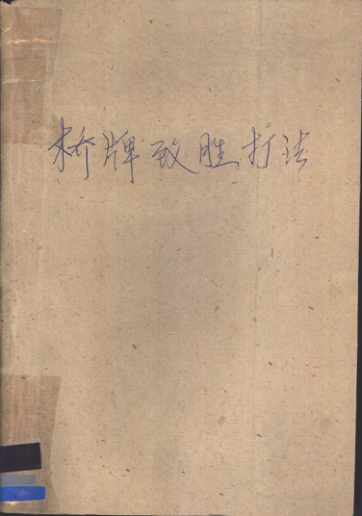 桥牌致胜打法